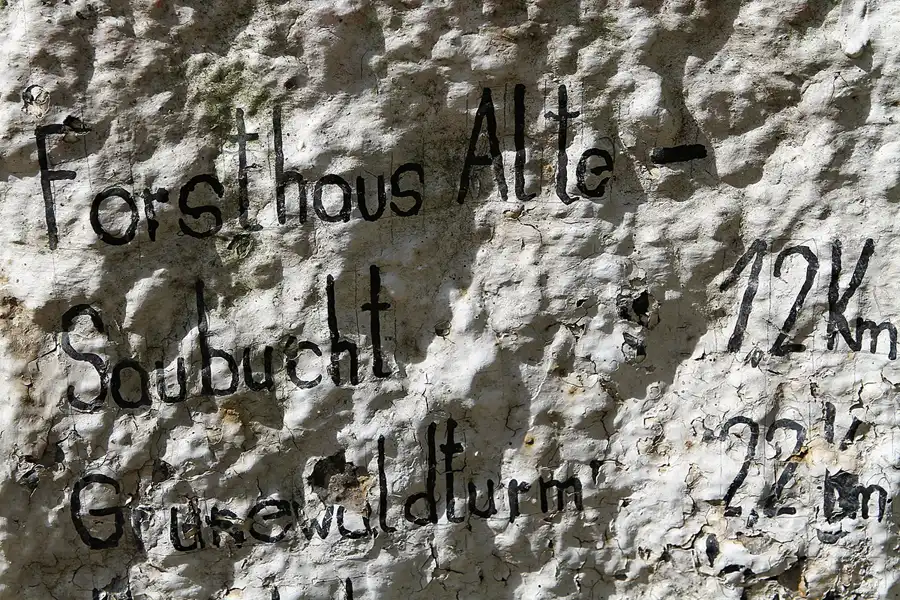 Forsthaus Alte -
Saubucht 1,2 Km
Grunewaldturm 2,2 Km